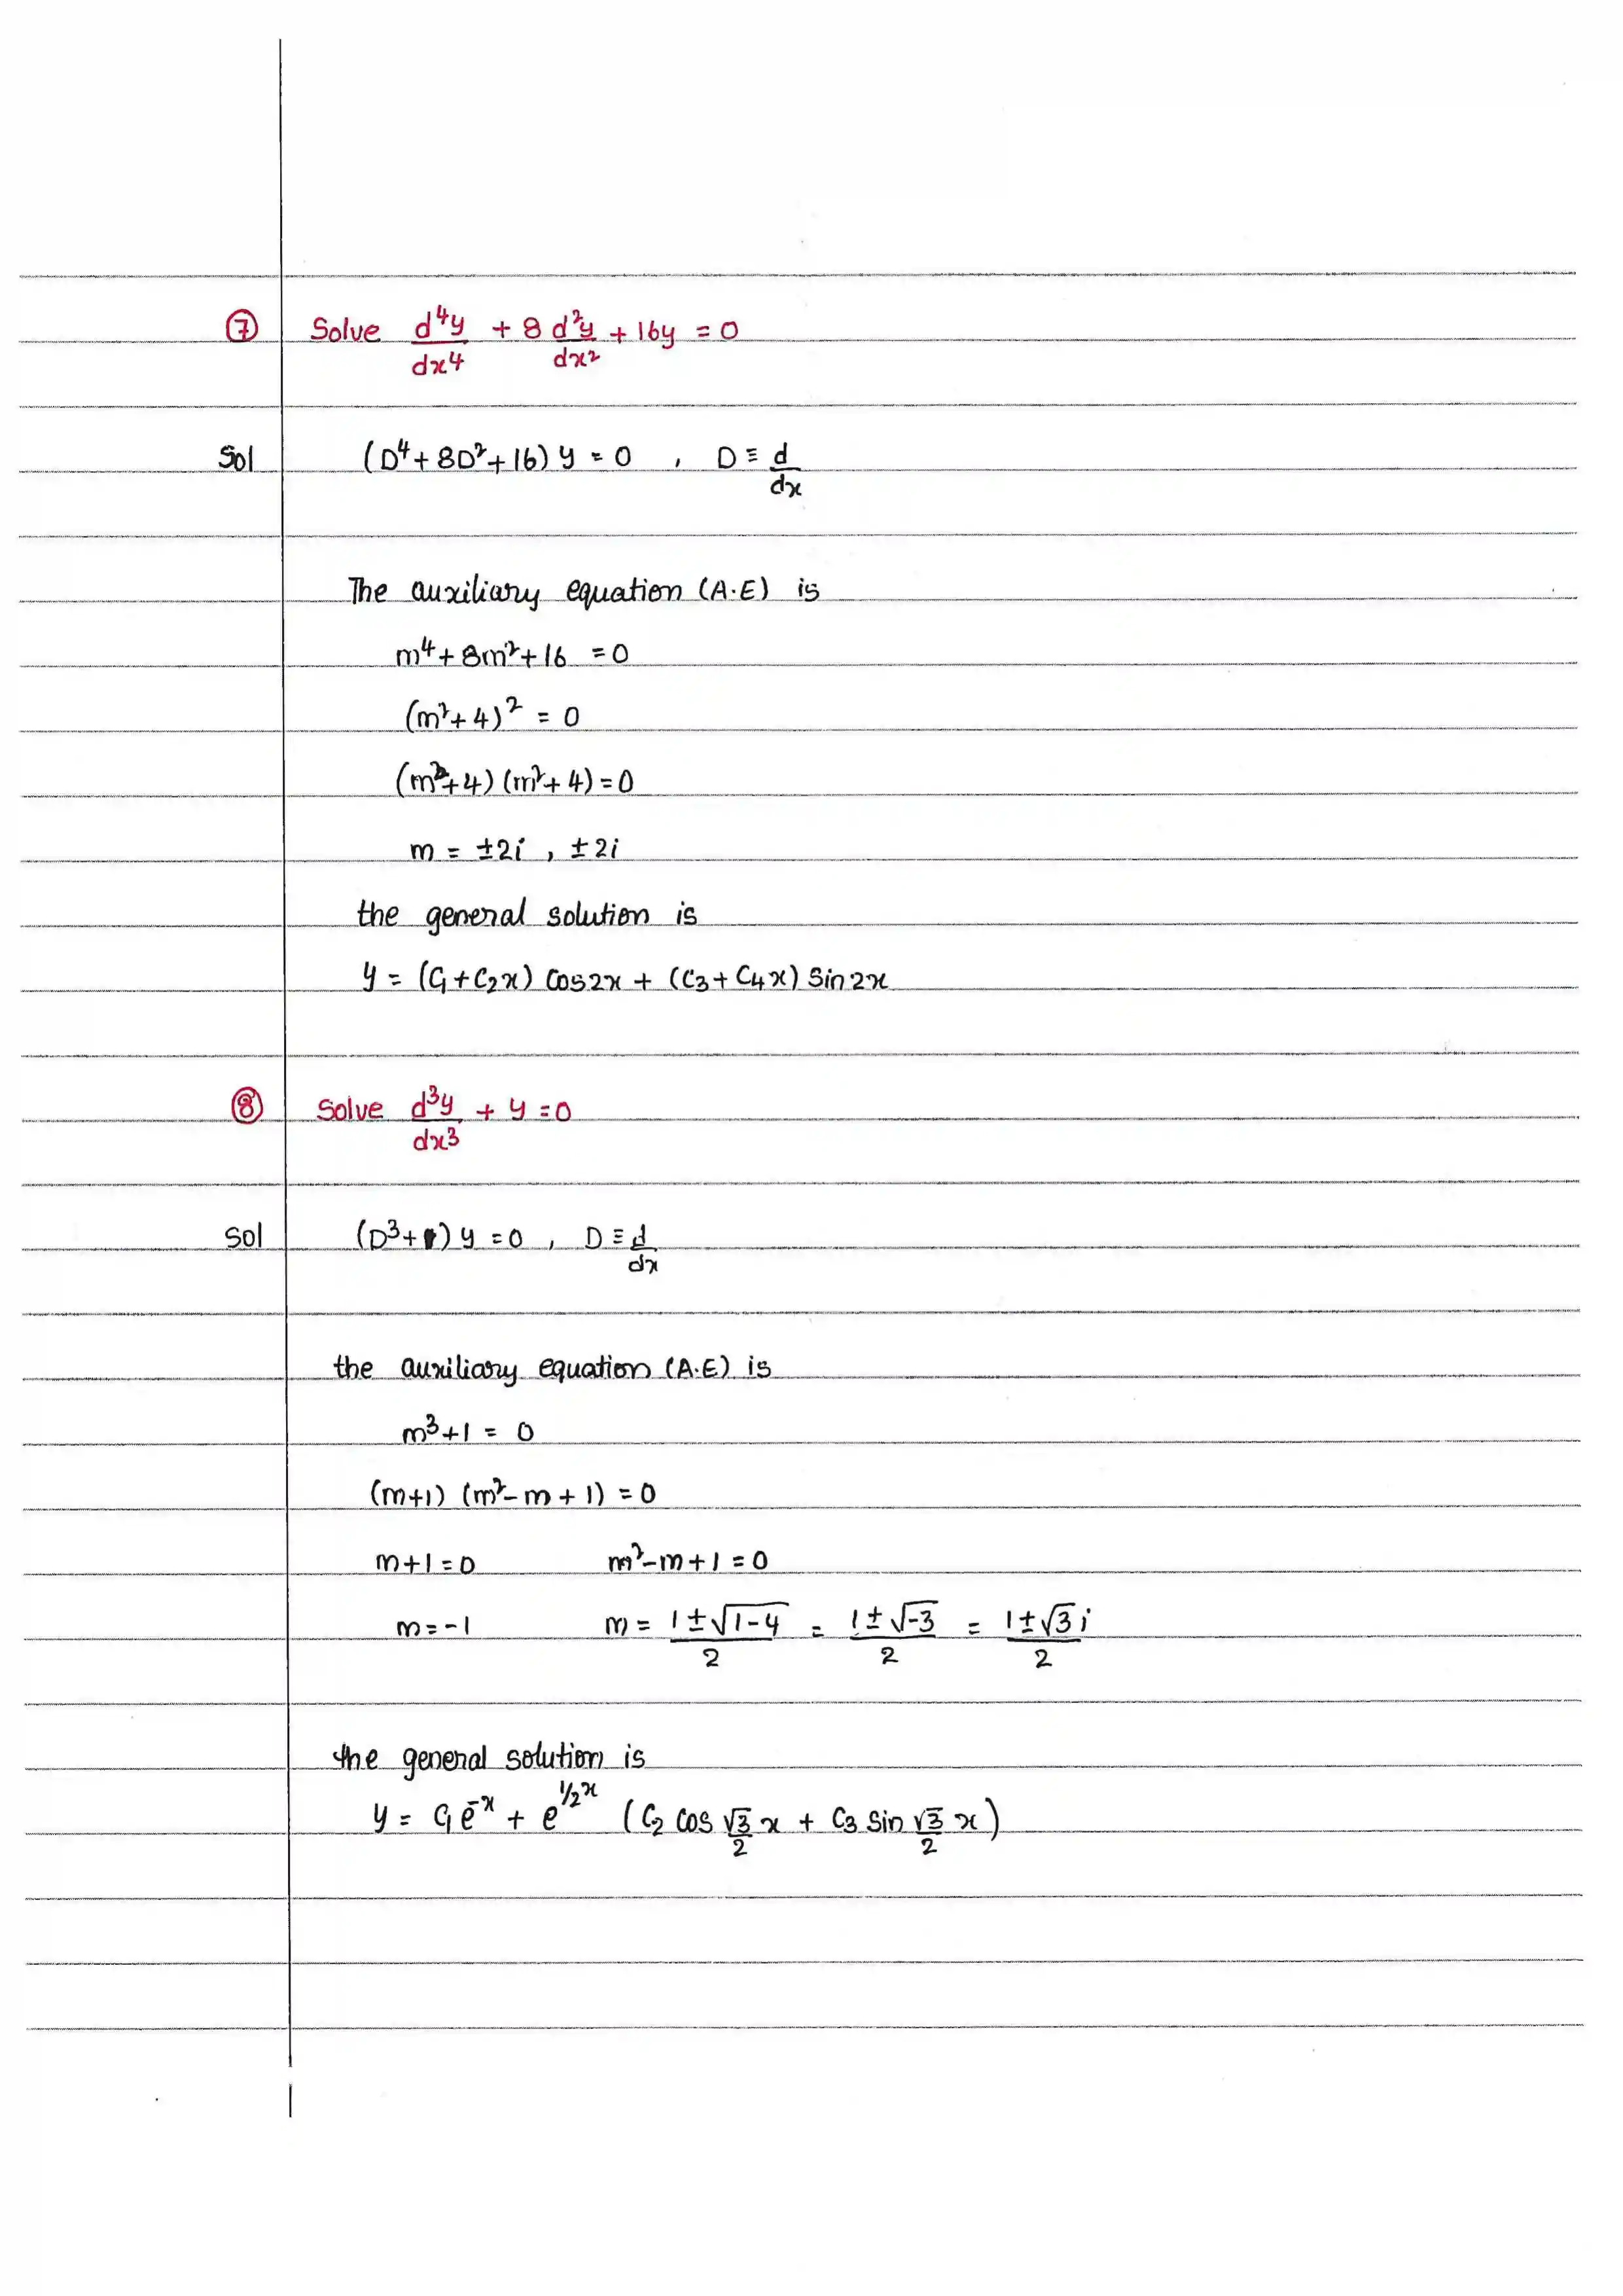 ⑦ Solve d⁴y/dx⁴ + 8 d²y/dx² + 16y = 0
Sol (D⁴ + 8D² + 16) y = 0 , D ≡ d/dx
The auxiliary equation (A.E) is
m⁴ + 8m² + 16 = 0
(m² + 4)² = 0
(m² + 4) (m² + 4) = 0
m = ±2i , ±2i
the general solution is
y = (C₁ + C₂x) Cos2x + (C₃ + C₄x) Sin2x
⑧ Solve d³y/dx³ + y = 0
Sol (D³ + 1) y = 0 , D ≡ d/dx
the auxiliary equation (A.E) is
m³ + 1 = 0
(m+1) (m² - m + 1) = 0
m + 1 = 0 m² - m + 1 = 0
m = -1 m = (1 ± √(1-4))/2 = (1 ± √-3)/2 = (1 ± √3 i)/2
the general solution is
y = C₁ e^-x + e^1/2x (C₂ Cos √3/2 x + C₃ Sin √3/2 x)